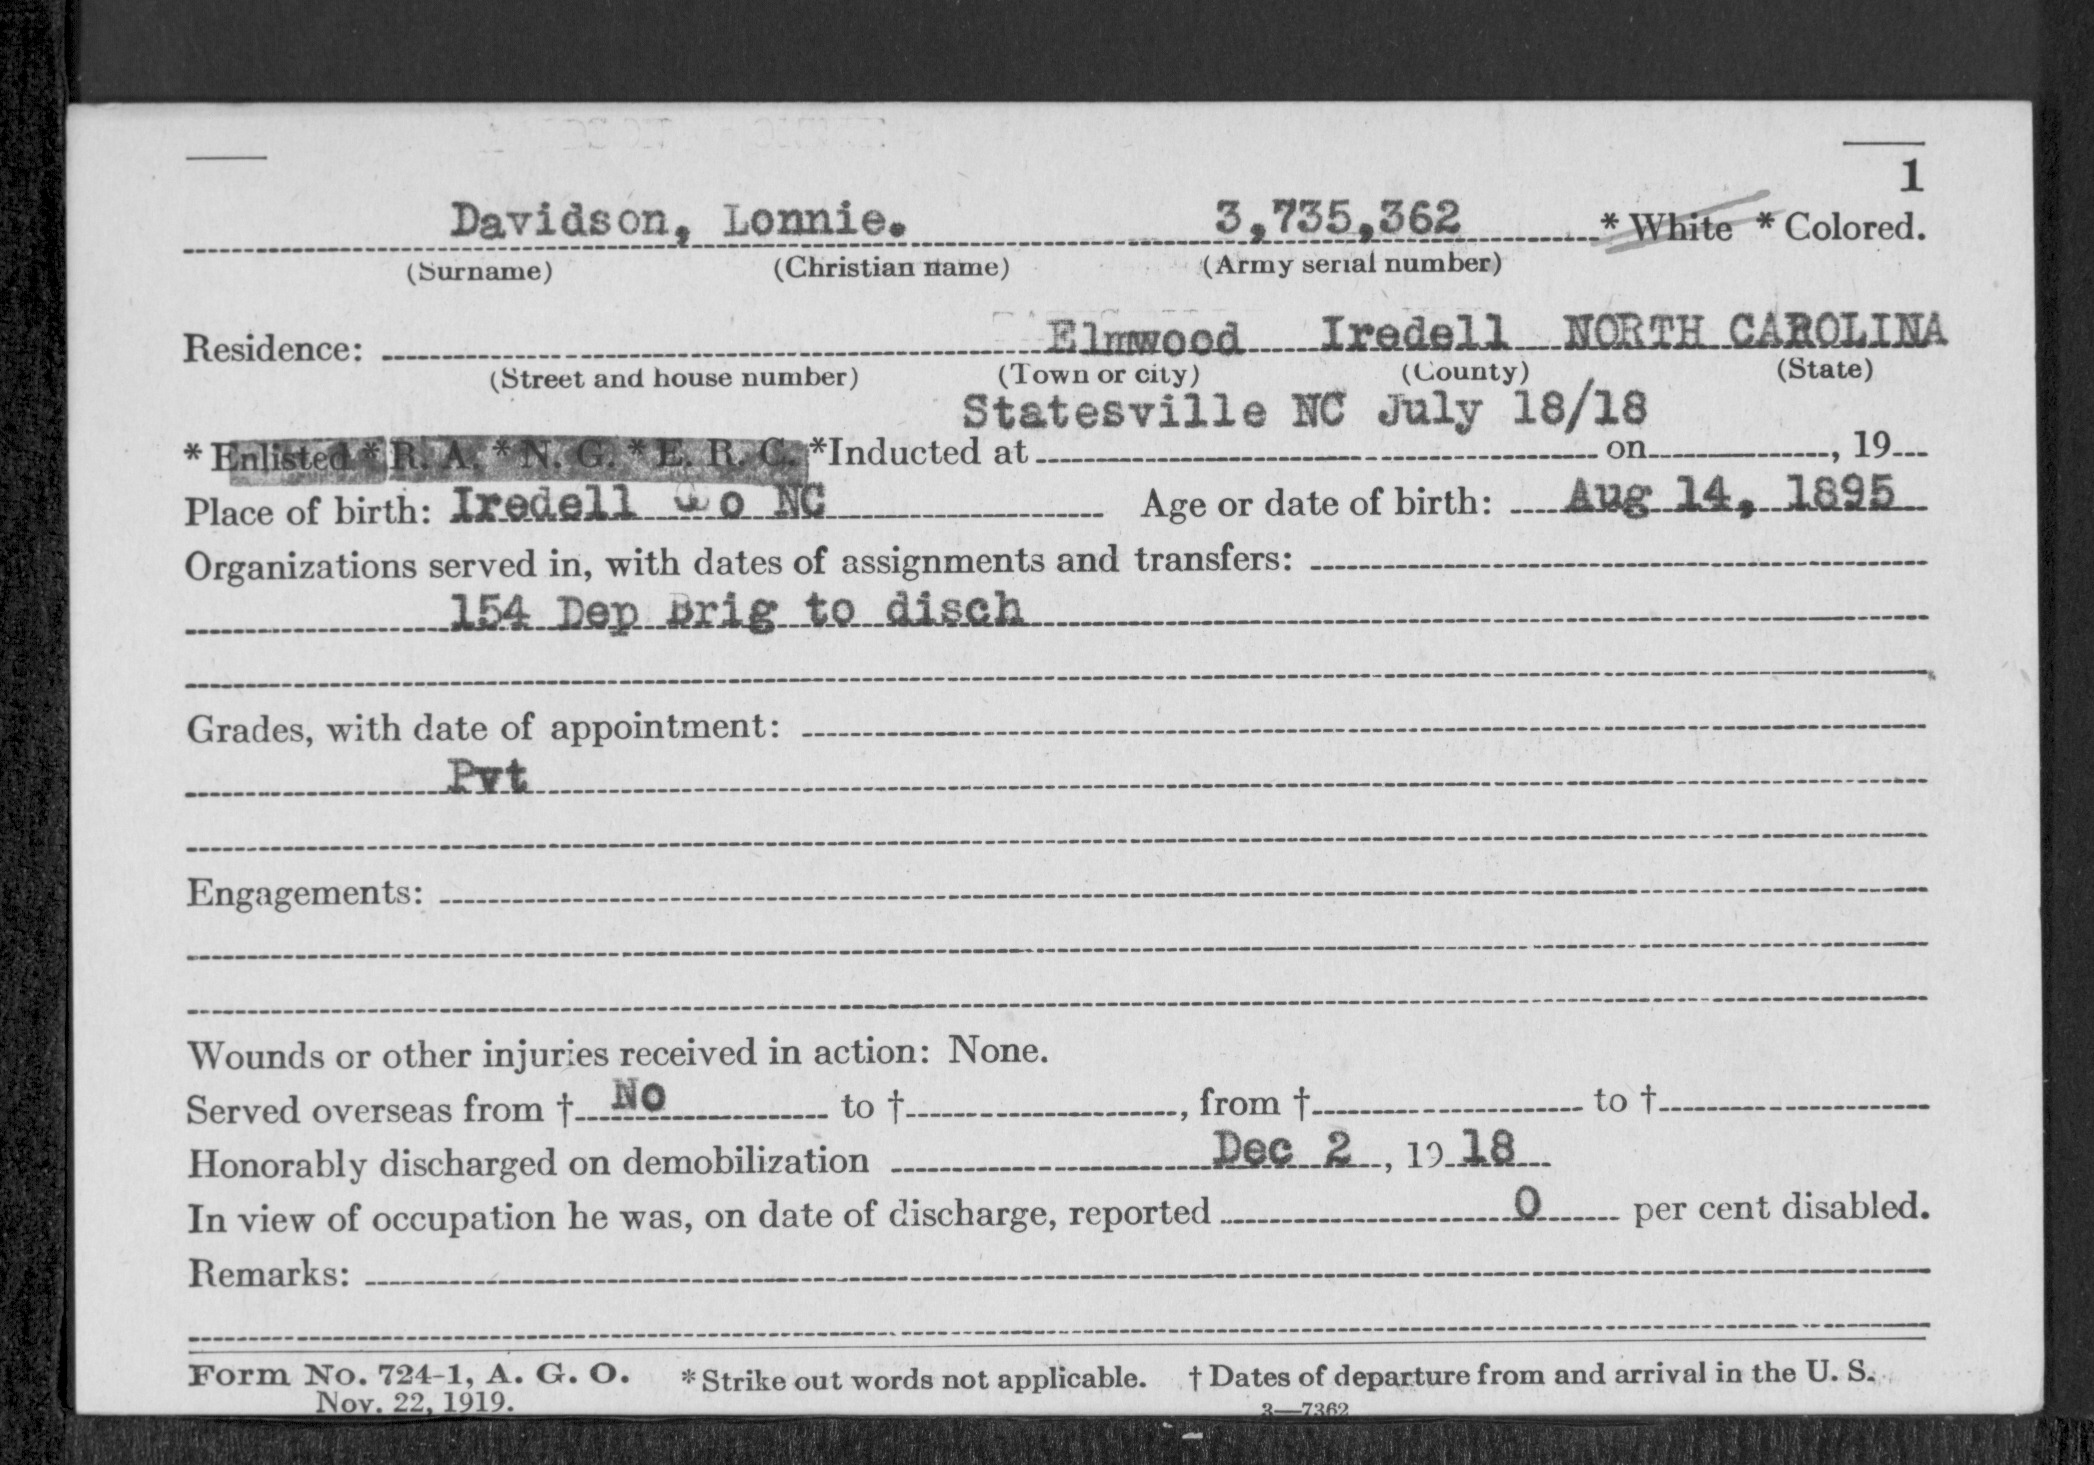 1
Davidson, Lonnie. 3,735,362 * White * Colored.
(Surname) (Christian name) (Army serial number)
Residence: Elmwood Iredell NORTH CAROLINA
(Street and house number) (Town or city) (County) (State)
Statesville NC July 18/18
* Enlisted * R. A. * N. G. * E. R. C. *Inducted at on , 19
Place of birth: Iredell Co NC Age or date of birth: Aug 14, 1895
Organizations served in, with dates of assignments and transfers:
154 Dep Brig to disch
Grades, with date of appointment:
Pvt
Engagements:
Wounds or other injuries received in action: None.
Served overseas from † No to † , from † to †
Honorably discharged on demobilization Dec 2 , 19 18
In view of occupation he was, on date of discharge, reported 0 per cent disabled.
Remarks:
Form No. 724-1, A. G. O. * Strike out words not applicable. † Dates of departure from and arrival in the U. S.
Nov. 22, 1919. 3—7362